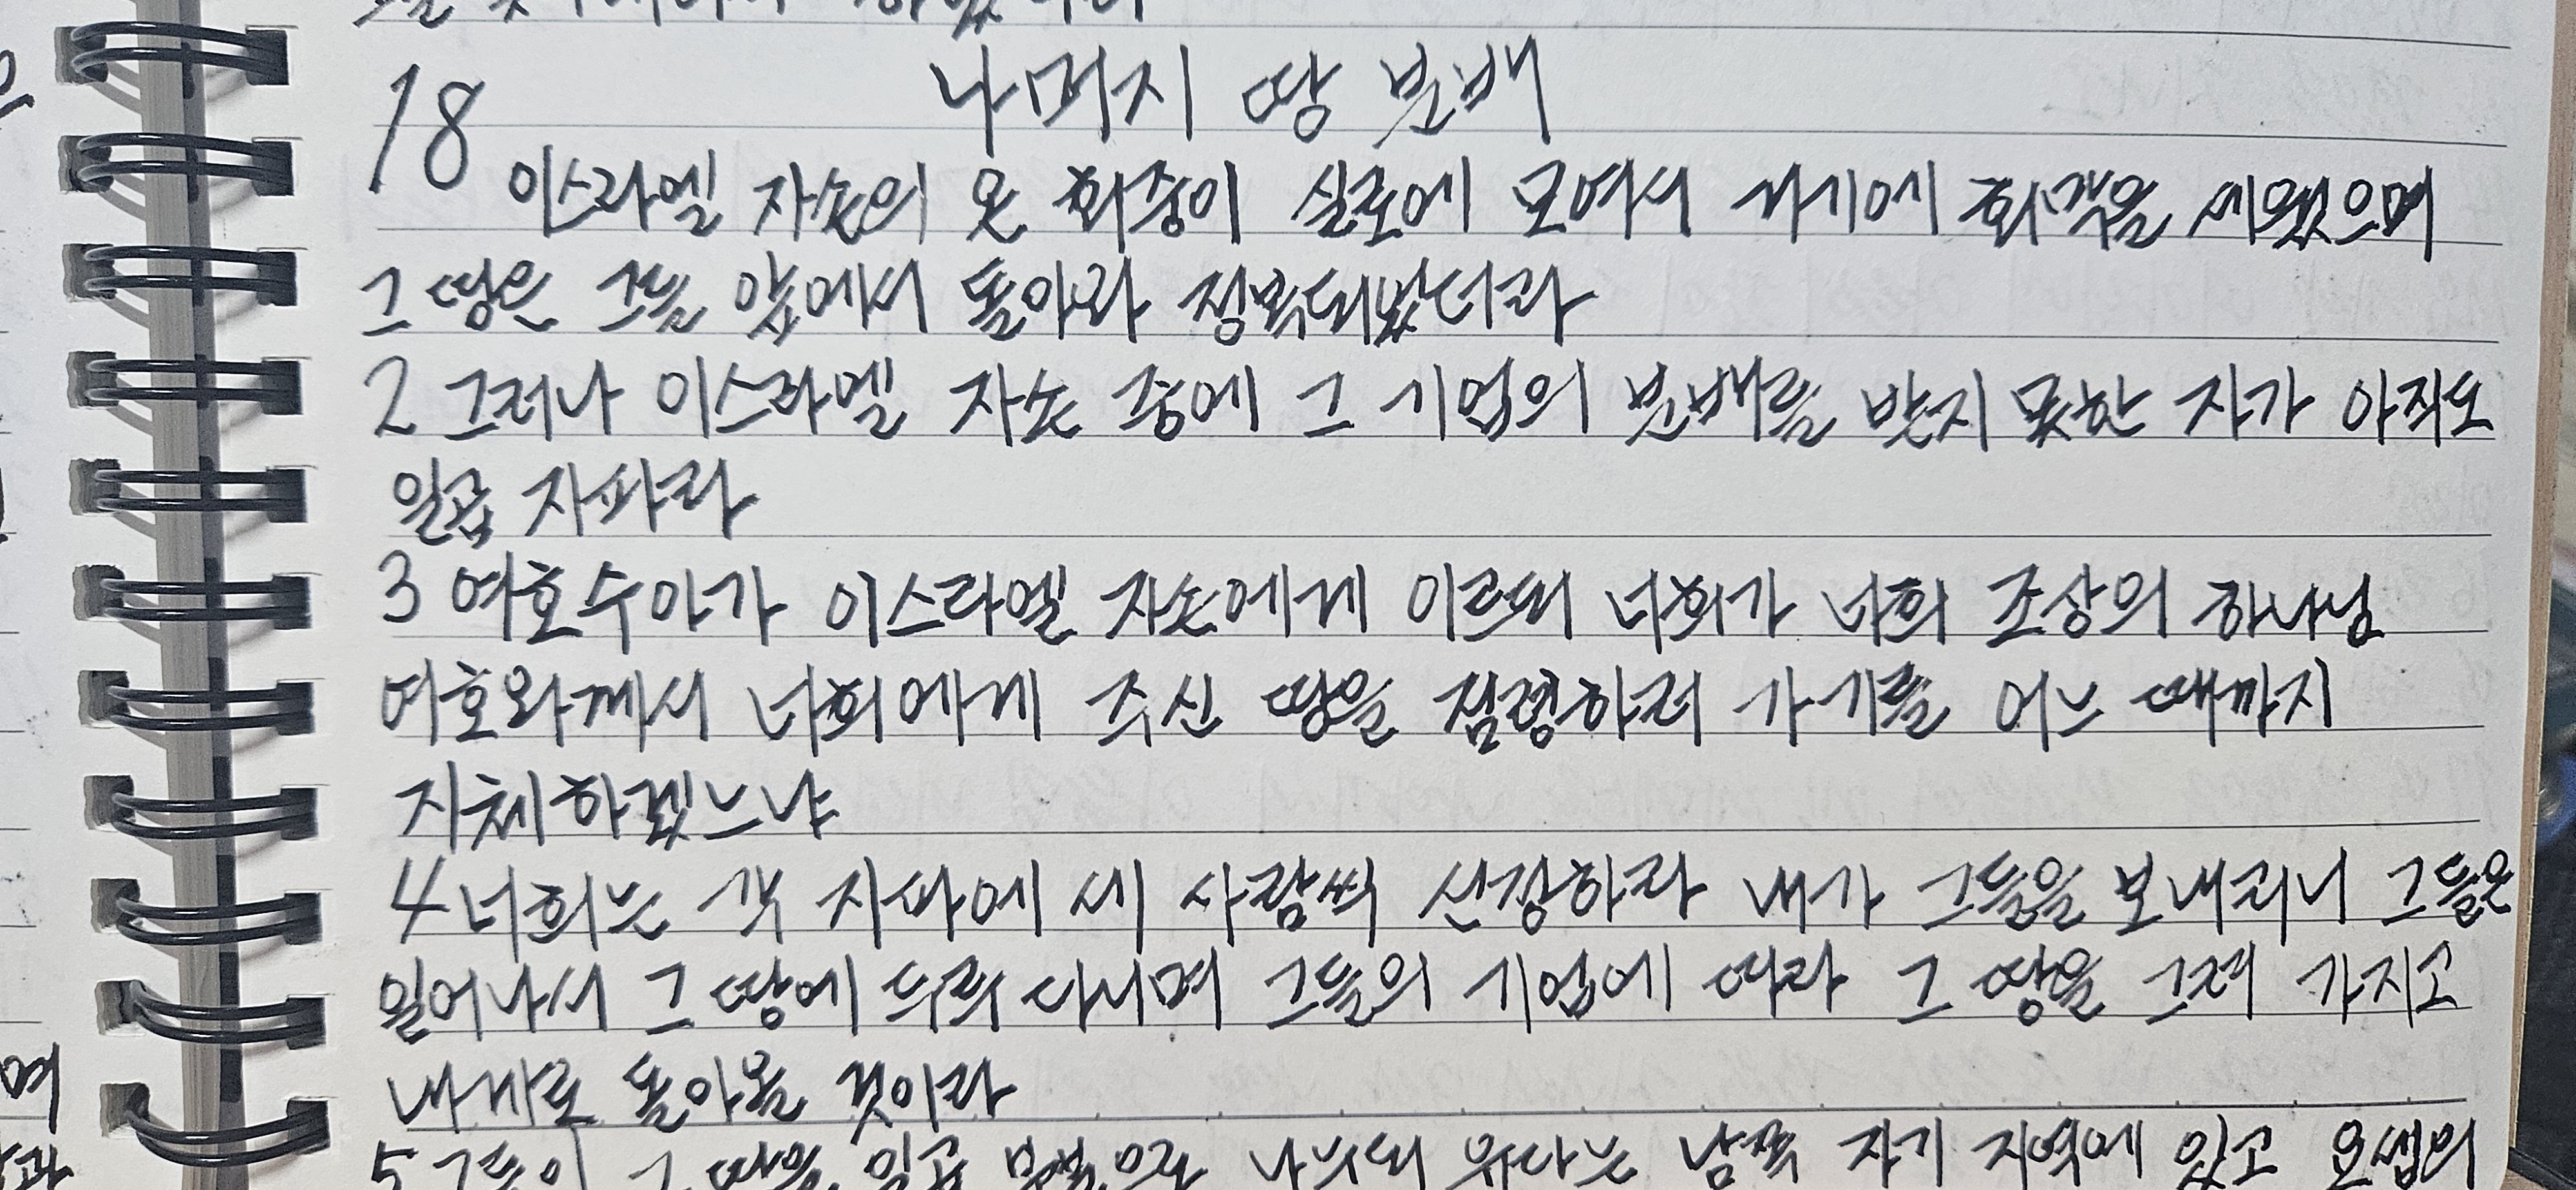 나머지 땅 분배
18
이스라엘 자손의 온 회중이 실로에 모여서 거기에 회막을 세웠으며
그 땅은 그들 앞에서 돌아와 정복되었더라
2 그러나 이스라엘 자손 중에 그 기업의 분배를 받지 못한 자가 아직도
일곱 지파라
3 여호수아가 이스라엘 자손에게 이르되 너희가 너희 조상의 하나님
여호와께서 너희에게 주신 땅을 점령하러 가기를 어느 때까지
지체하겠느냐
4 너희는 각 지파에 세 사람씩 선정하라 내가 그들을 보내리니 그들은
일어나서 그 땅에 두루 다니며 그들의 기업에 따라 그 땅을 그려 가지고
내게로 돌아올 것이라
5 그들이 그 땅을 일곱 부분으로 나누되 유다는 남쪽 자기 지역에 있고 요셉의